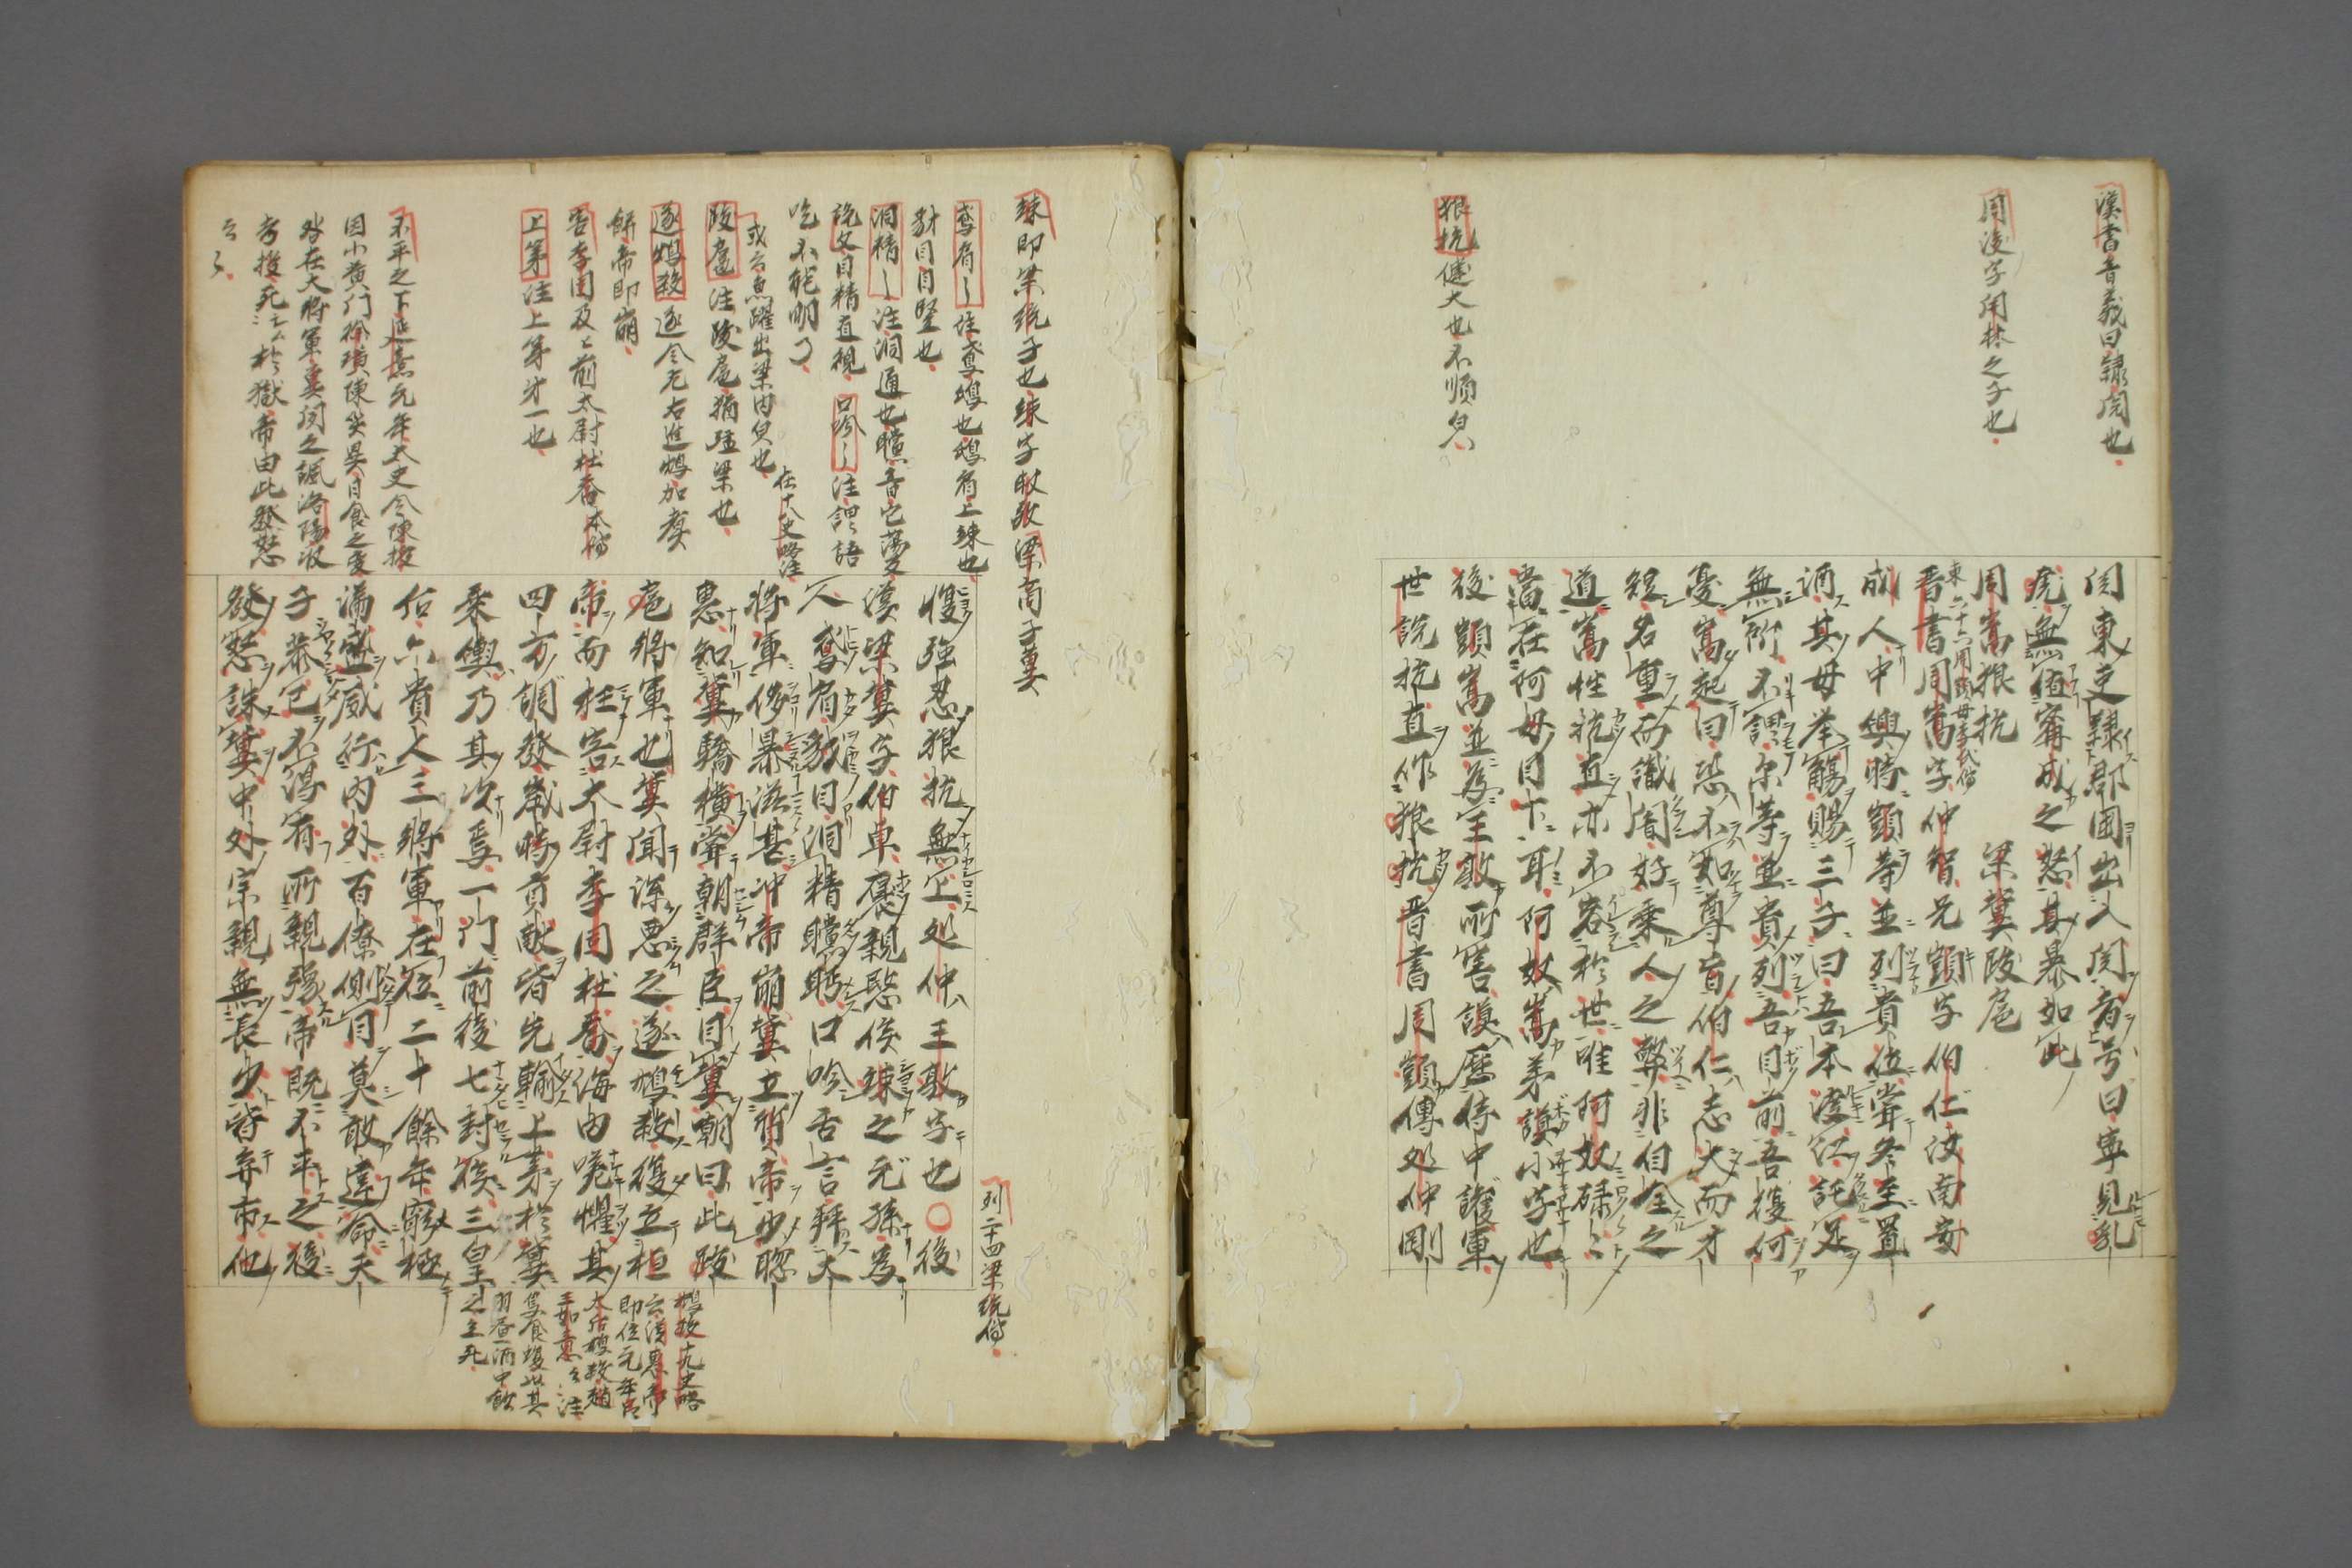 漢書音義曰隷閲也
周浚字開林之子也
狼抗健大也不順皃
関東吏隷郡国出入関者号曰寧見乳
虎無値甯成之怒其暴如此
周嵩狼抗 梁冀跋扈
晋書周嵩字仲智兄顗字伯仁汝南安
成人中興時顗等並列貴位嘗冬至置
酒其母挙觴賜三子曰吾本渡江託足
無所不謂尓等並貴列吾目前吾復何
憂嵩起曰恐不如尊旨伯仁志大而才
短名重而識闇好乗人之弊非自全之
道嵩性抗直亦不容於世唯阿奴碌々
當在阿母目下耳阿奴嵩弟謨小字也
後顗嵩並為王敦所害謨歴侍中護軍
世説抗直作狼抗晋書周顗傳処仲剛
竦即梁統子也竦字叔敬梁商子冀
鳶肩〻注鳶鴟也鴟肩上竦也
豺目目竪也
洞精〻注洞通也矘音它蕩反
説文目精直視 口吟〻注謂語
吃不能明了
或云魚躍出梁内皃也 在十八史略注
跋扈 注跋扈猶強梁也
遂鴆殺 遂令左右進鴆加煮
餅帝即崩
害李固及上前太尉杜喬本傳
上第 注上第第一也
不平之下延熹元年太史令陳授
因小黄門徐璜陳災異日食之変
咎在大将軍冀聞之諷洛陽収
考授死於獄帝由此發怒
云々
列二十四梁統傳
愎強忍狼抗無上処仲王敦字也○後
漢梁冀字伯卓褒親愍侯竦之元孫為
人鳶肩豺目洞精矘眄口吟舌言拜大
将軍侈暴滋甚沖帝崩冀立質帝少聡
恵知冀驕横嘗朝群臣目冀朝曰此跋
扈將軍也冀聞深悪之遂鴆殺復立桓
帝而枉害太尉李固杜喬海内嗟懼其
四方調發歳時貢献皆先輸上第於冀
乗輿乃其次焉一門前後七封侯三皇
后六貴人三將軍在位二十餘年窮極
満盛威行内外百僚側目莫敢違命天
子恭己不得有所親豫帝既不平之後
發怒誅冀中外宗親無長少皆弃市他